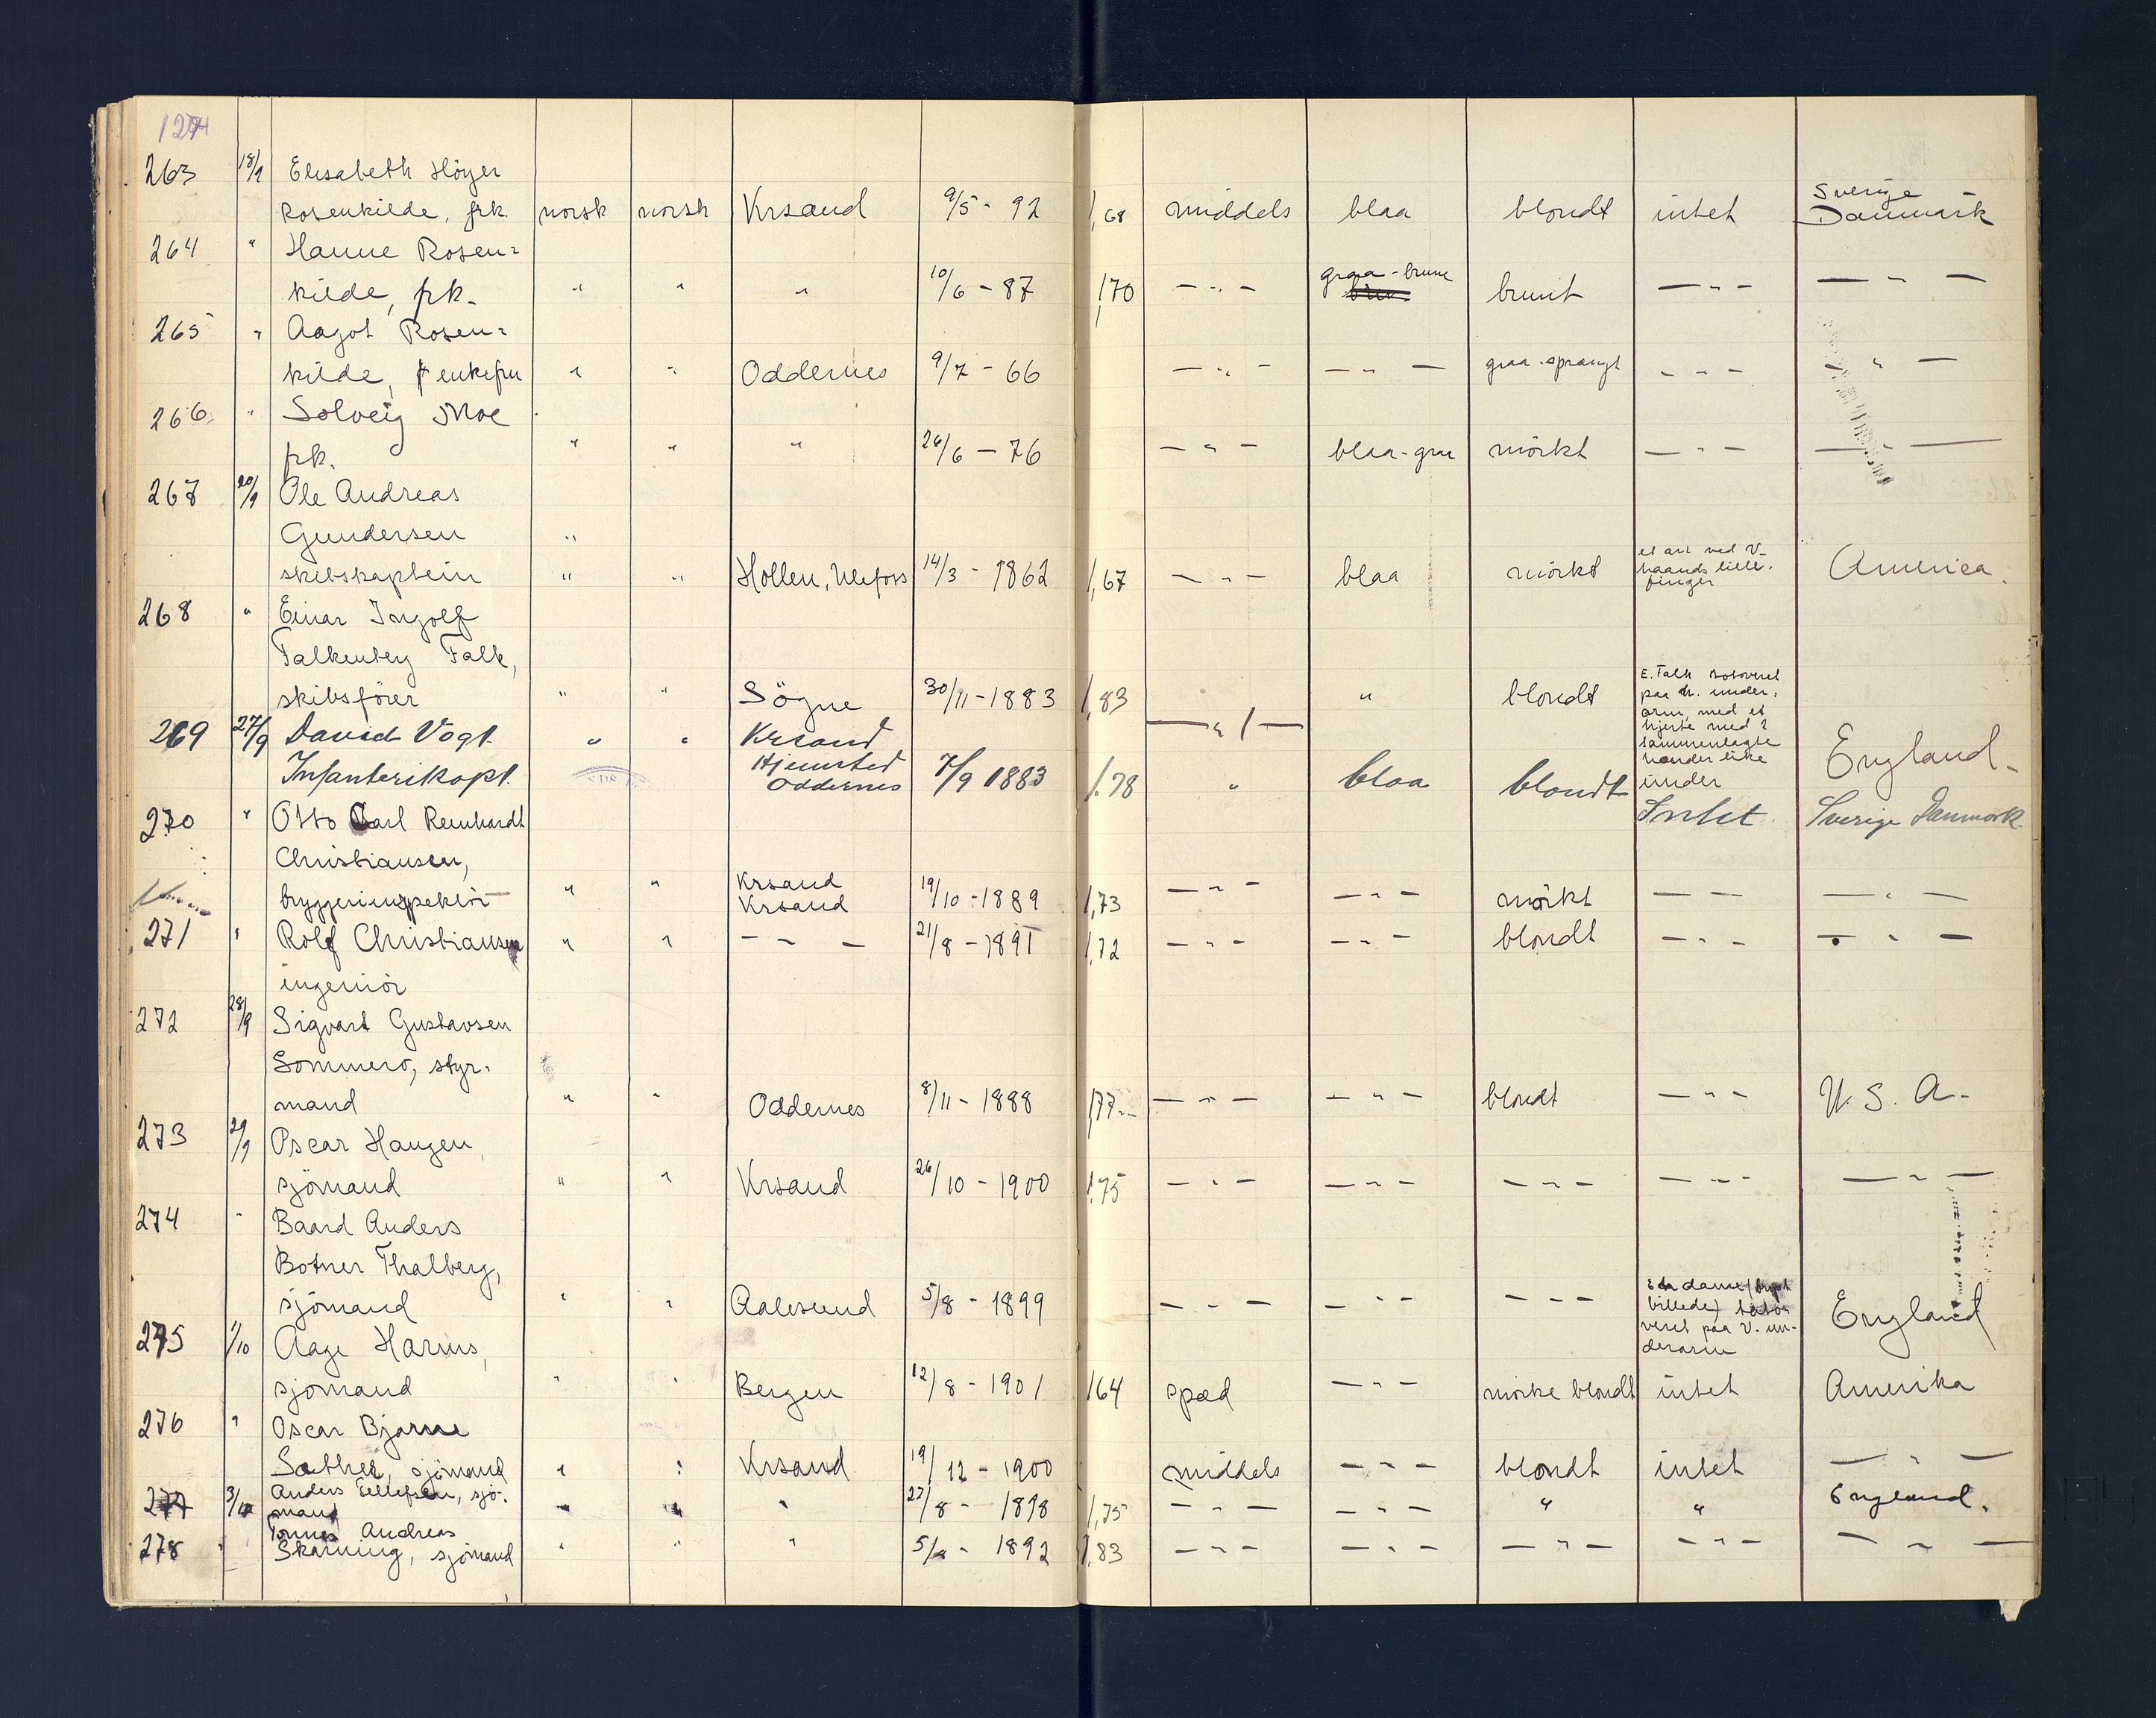 124
263 18/9 Elisabeth Höyer
Rosenkilde, frk. norsk norsk Krsand 9/5 - 92 1,68 middels blaa blondt intet Sverige Danmark
264 " Hanne Rosen=
kilde, frk. " " " 10/6 - 87 1,70 - " - graa-brune brunt - " - - " -
265 " Aagot Rosen=
kilde, enkefru " " Oddernes 9/7 - 66 - " - - " - graa-sprængt - " - - " -
266 " Solveig Moe
frk. " " " 26/6 - 76 - " - blaa-graa mörkt - " - - " -
267 20/9 Ole Andreas
Gundersen "
skibskaptein " " Hollen, Ulefoss 14/3 - 1862 1,67 - " - blaa mörkt et arr ved V- haands lille- finger America.
268 " Einar Ingolf
Falkenberg Falk,
skibsförer " " Sögne 30/11 - 1883 1,83 - " - " blondt E. Falk tatoveret paa h. under- arm, med et hjerte med 2 sammenlagte hænder like under England-
269 27/9 David Vogt " " Krsand
Infanterikapt. Hjemsted Oddernes 7/9 1883 1.78 " blaa blondt Intet Sverige Danmark
270 " Otto Carl Reinhardt
Christiansen,
bryggeriinspektör " " Krsand Krsand 19/10 - 1889 1,73 - " - - " - mörkt - - - " -
271 " Rolf Christiansen " " - " - 21/8 - 1891 1,72 - " - - " - blondt - " - - " -
ingeniör
272 28/9 Sigvart Gustavsen
Sommerö, styr-
mand " " Oddernes 8/11 - 1888 1,77 - " - - " - blondt - " - U. S. A.-
273 29/9 Oscar Haugen,
sjömand " " Krsand 26/10 - 1900 1.75 - " - - " - - " - - " - - " -
274 " Baard Anders
Botner Thalberg,
sjömand " " Aalesund 5/8 - 1899 - " - - " - - - - En dame billede) tato- veret paa V. un- derarm England
275 1/10 Aage Harms,
sjömand " " Bergen 12/8 - 1901 164 spæd - " - mörke blondt intet Amerika
276 " Oscar Bjarne
Sæther, sjömand " " Krsand 19/12 - 1900 middels - " - blondt intet - " -
277 3/10 Anders Ellefsen, sjö-
mand " " " 27/8 - 1898 1,75 - " - - " - " " England.
278 " Tönnes Andreas
Skarning, sjömand " " " 1892 1.83 - " - - " - - " - - " - - " -